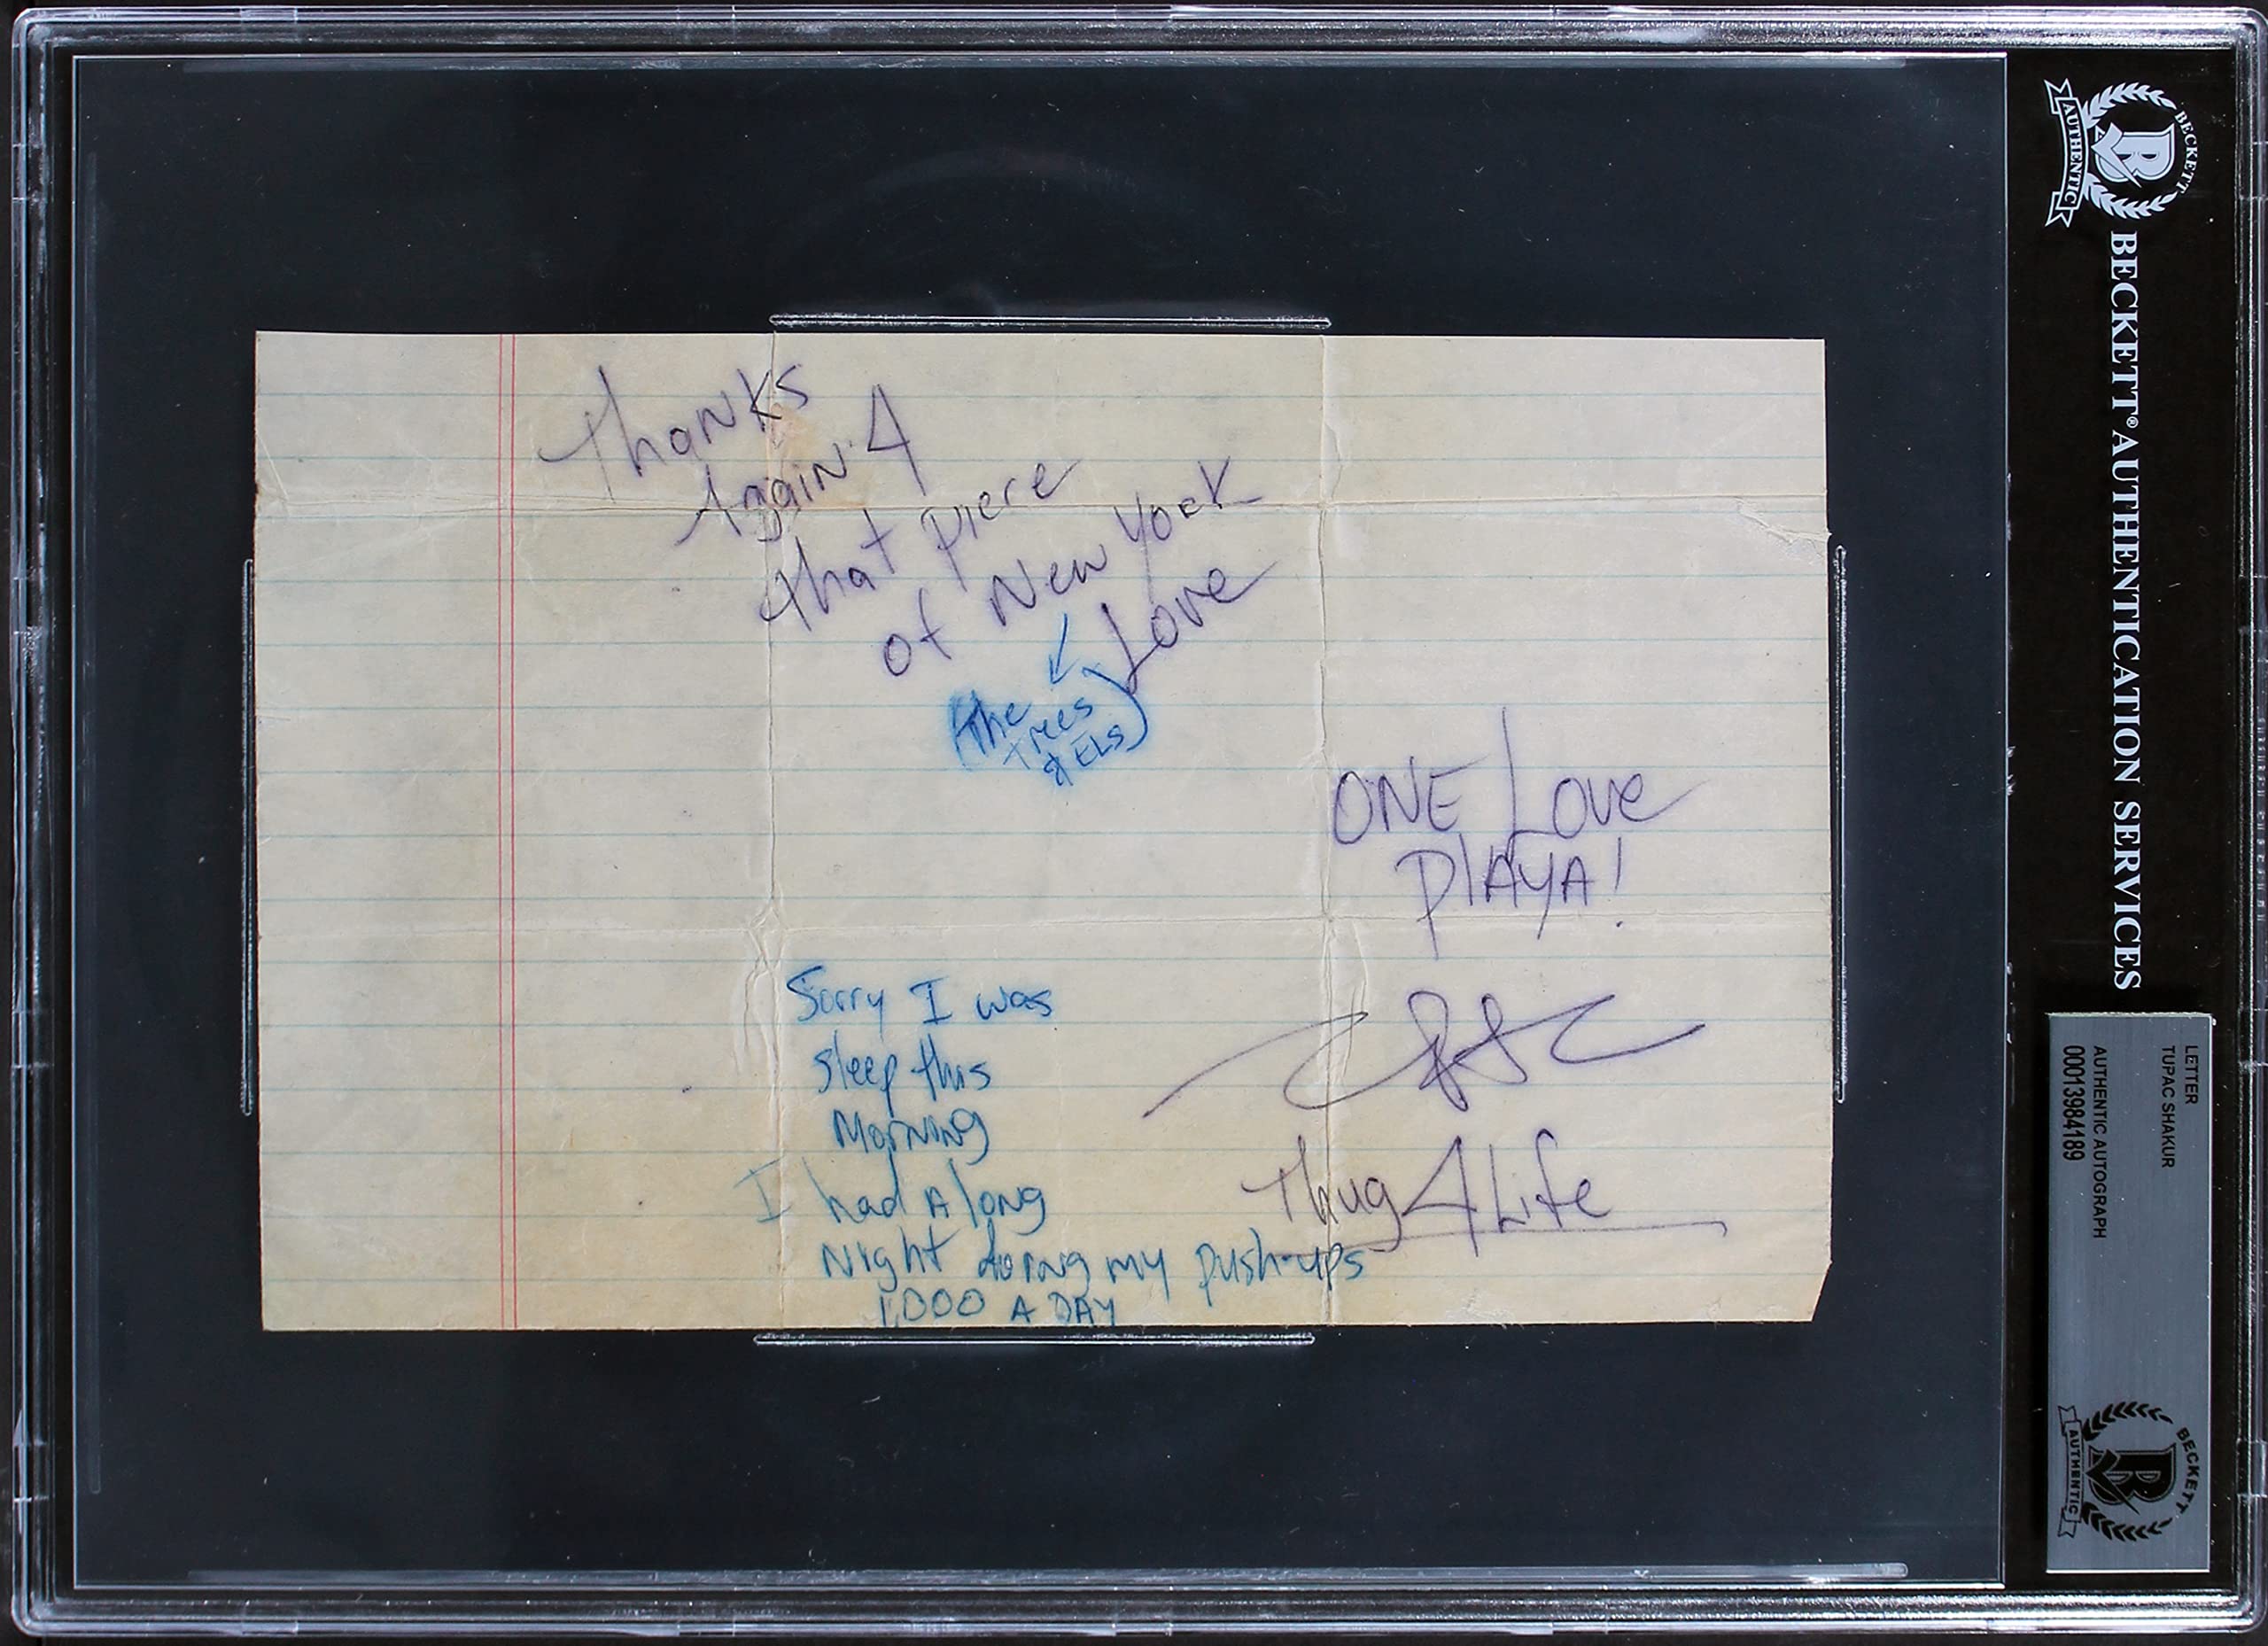 Thanks
Again 4
that piece
of New York
Love
(the
Trees
& ELS)
ONE Love
Playa!
Sorry I was
sleep this
Morning
I had A long
Night doing my push-ups
1,000 A DAY
Thug 4 Life
BECKETT
AUTHENTIC
BECKETT® AUTHENTICATION SERVICES
LETTER
TUPAC SHAKUR
AUTHENTIC AUTOGRAPH
00013984189
BECKETT
AUTHENTIC